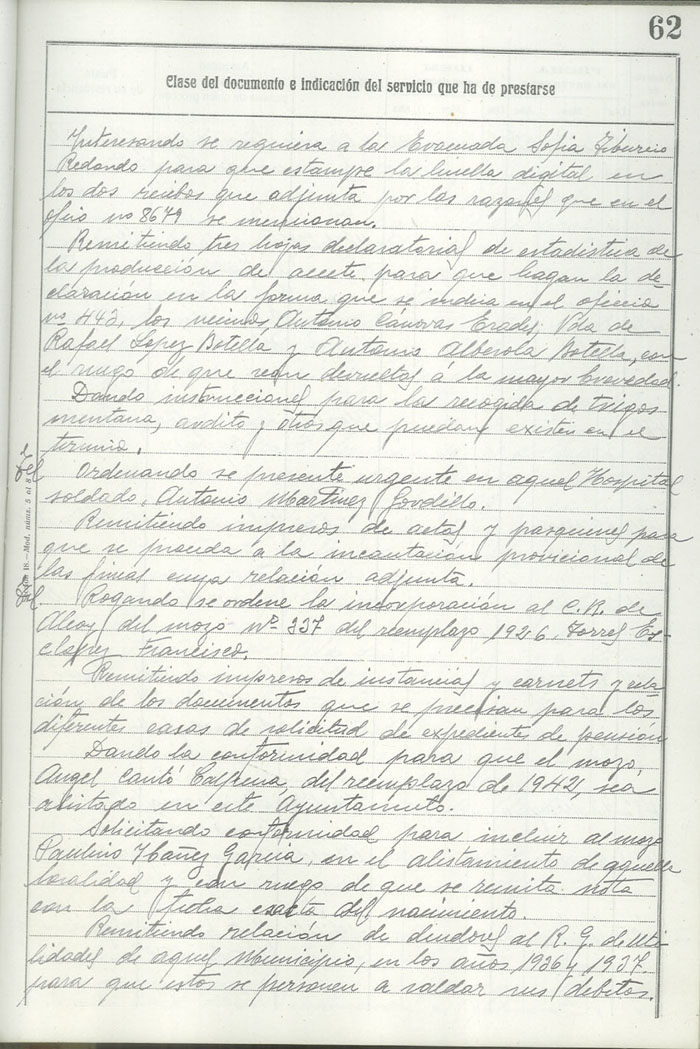 62
Clase del documento e indicación del servicio que ha de prestarse
Interesando se requiera a la Evacuada Sofia Tiburcio
Redondo para que estampe la huella digital en
los dos recibos que adjunta por las razones que en el
oficio nº 8679 se mencionan.
Remitiendo tres hojas declaratorias de estadistica de
la producción de aceite para que hagan la de-
claración en la forma que se indica en el oficio
nº 442, los vecinos Antonio Cánovas Vda de
Rafael Lopez Botella y Antonio Alberola Botella, con
el ruego de que sean devueltas á la mayor brevedad.
Dando instrucciones para la recogida de trigos
mentana, ardito y otros que puedan existir en el
termino.
Ordenando se presente urgente en aquel Hospital el
soldado, Antonio Martinez Gordillo.
Remitiendo impresos de actas y pasquines para
que se proceda a la incautación provicional de
las fincas cuya relación adjunta.
Rogando se ordene la incorporación al C.R. de
Alcoy del mozo nº 337 del reemplazo 1926, Torres Es-
clapez Francisco.
Remitiendo impresos de instancias y carnets y rela
ción de los documentos que se precisan para los
diferentes casos de solicitud de expediente de pensión
Dando la conformidad para que el mozo
Angel Cantó del reemplazo de 1942, sea
alistado en este Ayuntamiento.
Solicitando conformidad para incluir al mozo
Paulino Ibañez Garcia, en el alistamiento de aquella
localidad y con ruego de que se remita nota
con la fecha exacta del nacimiento.
Remitiendo relación de deudores al R. G. de Uti
lidades de aquel Municipio, en los años 1936 y 1937.
para que estos se personen a saldar sus debitos.
Mod. núms. 5 al 8